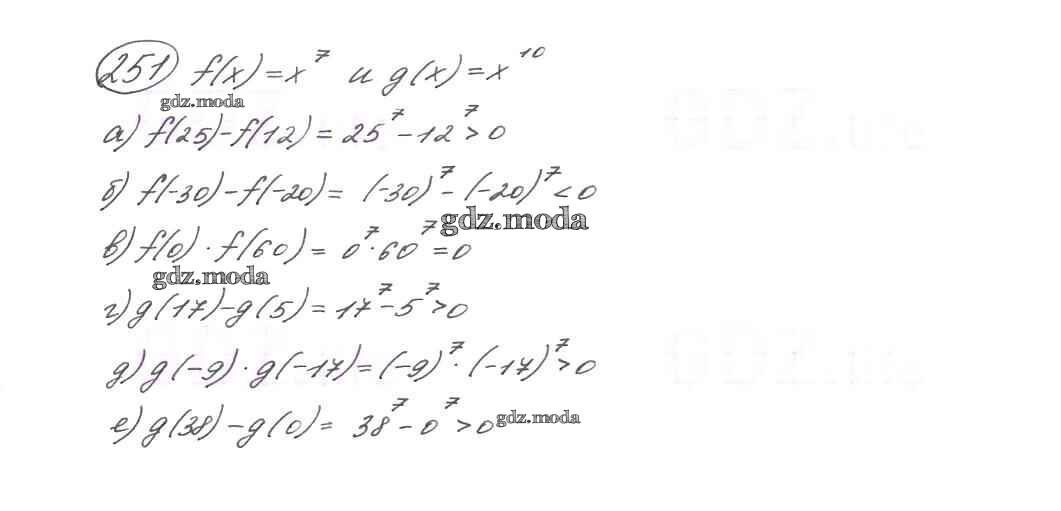 251 f(x) = x⁷ и g(x) = x¹⁰
gdz.moda
а) f(25) - f(12) = 25⁷ - 12⁷ > 0
GDZ.life
б) f(-30) - f(-20) = (-30)⁷ - (-20)⁷ < 0
gdz.moda
в) f(0) · f(60) = 0⁷ · 60⁷ = 0
gdz.moda
г) g(17) - g(5) = 17⁷ - 5⁷ > 0
д) g(-9) · g(-17) = (-9)⁷ · (-17)⁷ > 0
GDZ.life
е) g(38) - g(0) = 38⁷ - 0⁷ > 0
gdz.moda